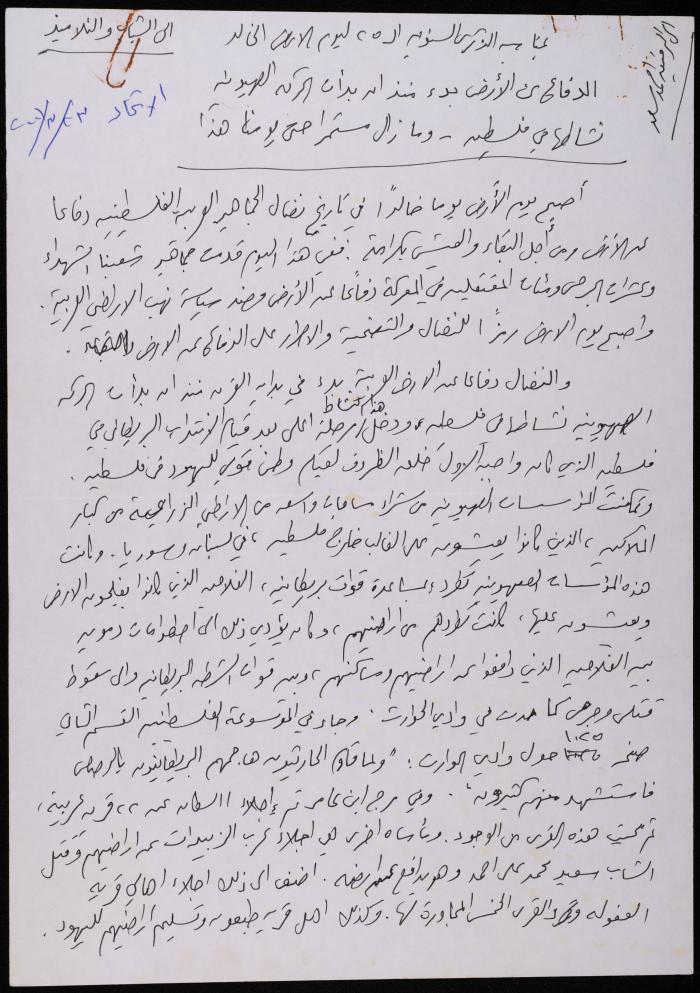 الى الشباب والتلاميذ
بمناسبة الذكرى السنوية الـ ٢٥ ليوم الارض الخالد
الدفاع عن الأرض بدء منذ ان بدات الحركه الصهيونيه
نشاطها في فلسطين - وما زال مستمرا حتى يومنا هذا
الاتحاد
أصبح يوم الأرض يوما خالدًا في تاريخ نضال الجماهير العربية الفلسطينيه دفاعا
عن الأرض ومن أجل البقاء والعيش بكرامة. ففي هذا اليوم قدمت جماهير شعبنا الشهداء
وعشرات الجرحى ومئات المعتقلين في المعركة دفاعًا عن الأرض وضد سياسة نهب الاراضي العربية.
واصبح يوم الارض رمزًا للنضال والتضحية والاصرار على الدفاع عن الارض
والنضال دفاعا عن الارض العربية بدء في بداية القرن منذ ان بدات الحركه
الصهيونيه نشاطها في فلسطين، ودخل هذا النشاط مرحلة اعلى بعد قيام الانتداب البريطاني في
فلسطين الذي كان واجبه الاول خلق الظروف لقيام وطن قومي لليهود في فلسطين.
وتمكنت المؤسسات الصهيونيه من شراء مساحات واسعه من الاراضي الزراعية من كبار
الملاكين، الذين كانوا يعيشون على الغالب خارج فلسطين، في لبنان وسوريا. وكانت
هذه المؤسسات الصهيونية تطرد بمساعدة قوات بريطانيه، الفلاحين الذين كانوا يفلحون الارض
ويعيشون عليها، كانت تطردهم من اراضيهم، وكان يؤدي ذلك الى اصطدامات دمويه
بين الفلاحين الذين دافعوا عن اراضيهم ومساكنهم، وبين قوات الشرطه البريطانيه والى سقوط
قتلى وجرحى كما حدث في وادي الحوارث. وجاء في الموسوعة الفلسطينيه القسم الثاني
صفحه ١٠٢٥ حول وادي الحوارث: "ولما قاوم الحارثيون هاجمهم البريطانيون بالرصاص
فاستشهد منهم كثيرون". وفي مرج ابن عامر تم إجلاء السكان عن ٢٢ قريه عربية،
تم محيت هذه القرى من الوجود. ومأساه اخرى هي اجلاء عرب الزبيدات عن اراضيهم وقتل
الشاب سعيد محمد علي احمد وهو يدافع عن ارضه. اضف الى ذلك اجلاء اهالي قرية
العفوله والقرى الخمس المجاورة لها. وكذلك اهل قرية طبعون وتسليم اراضيهم لليهود.